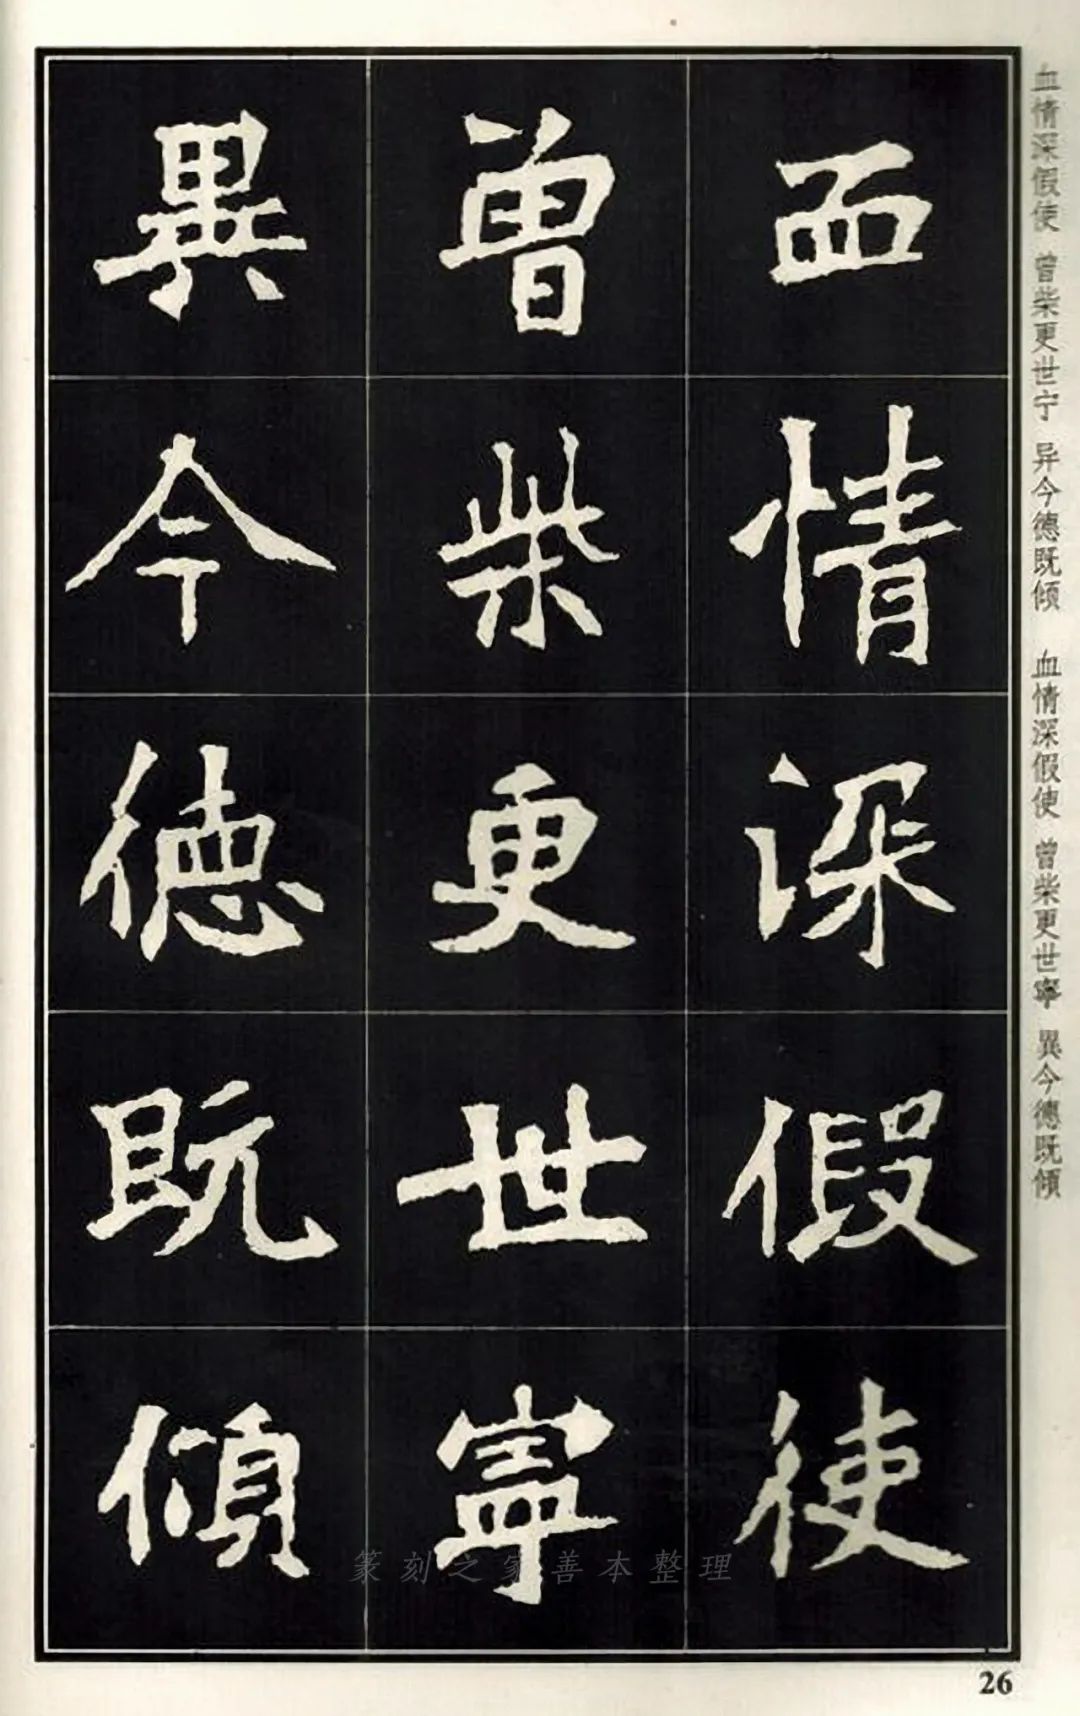 血情深假使 曾柴更世宁 异今德既倾 血情深假使 曾柴更世寧 異今德既傾
血情深假使
曾柴更世寧
異今德既傾
篆刻之家善本整理
26